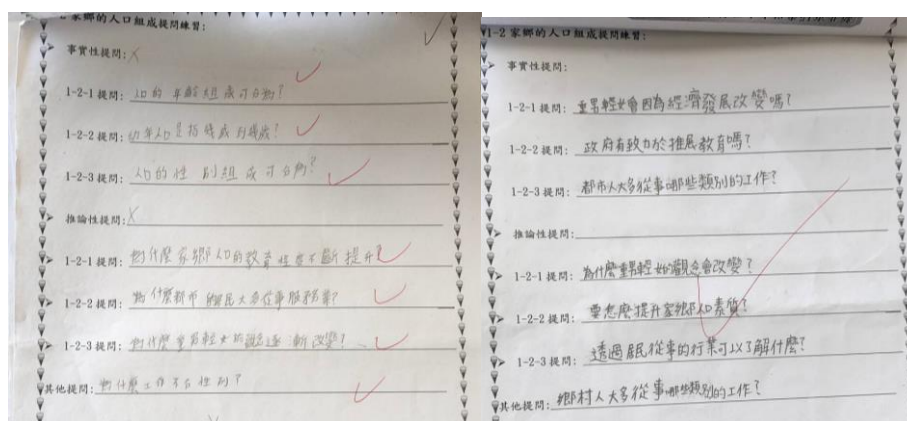 家鄉的人口組成提問練習：
事實性提問：X
1-2-1提問：人口的年齡組成可分為？
1-2-2提問：幼年人口是指幾歲到幾歲？
1-2-3提問：人口的性別組成可分為？
推論性提問：X
1-2-1提問：為什麼家鄉人口的教育程度不斷提升？
1-2-2提問：為什麼都市居民大多從事服務業？
1-2-3提問：為什麼重男輕女的觀念逐漸改變？
其他提問：為什麼工作不分性別？
1-2 家鄉的人口組成提問練習：
事實性提問：
1-2-1提問：重男輕女會因為經濟發展改變嗎？
1-2-2提問：政府有致力於推展教育嗎？
1-2-3提問：都市人大多從事哪些類別的工作？
推論性提問：
1-2-1提問：為什麼重男輕女的觀念會改變？
1-2-2提問：要怎麼提升家鄉人口素質？
1-2-3提問：透過居民從事的行業可以了解什麼？
其他提問：鄉村人大多從事哪些類別的工作？